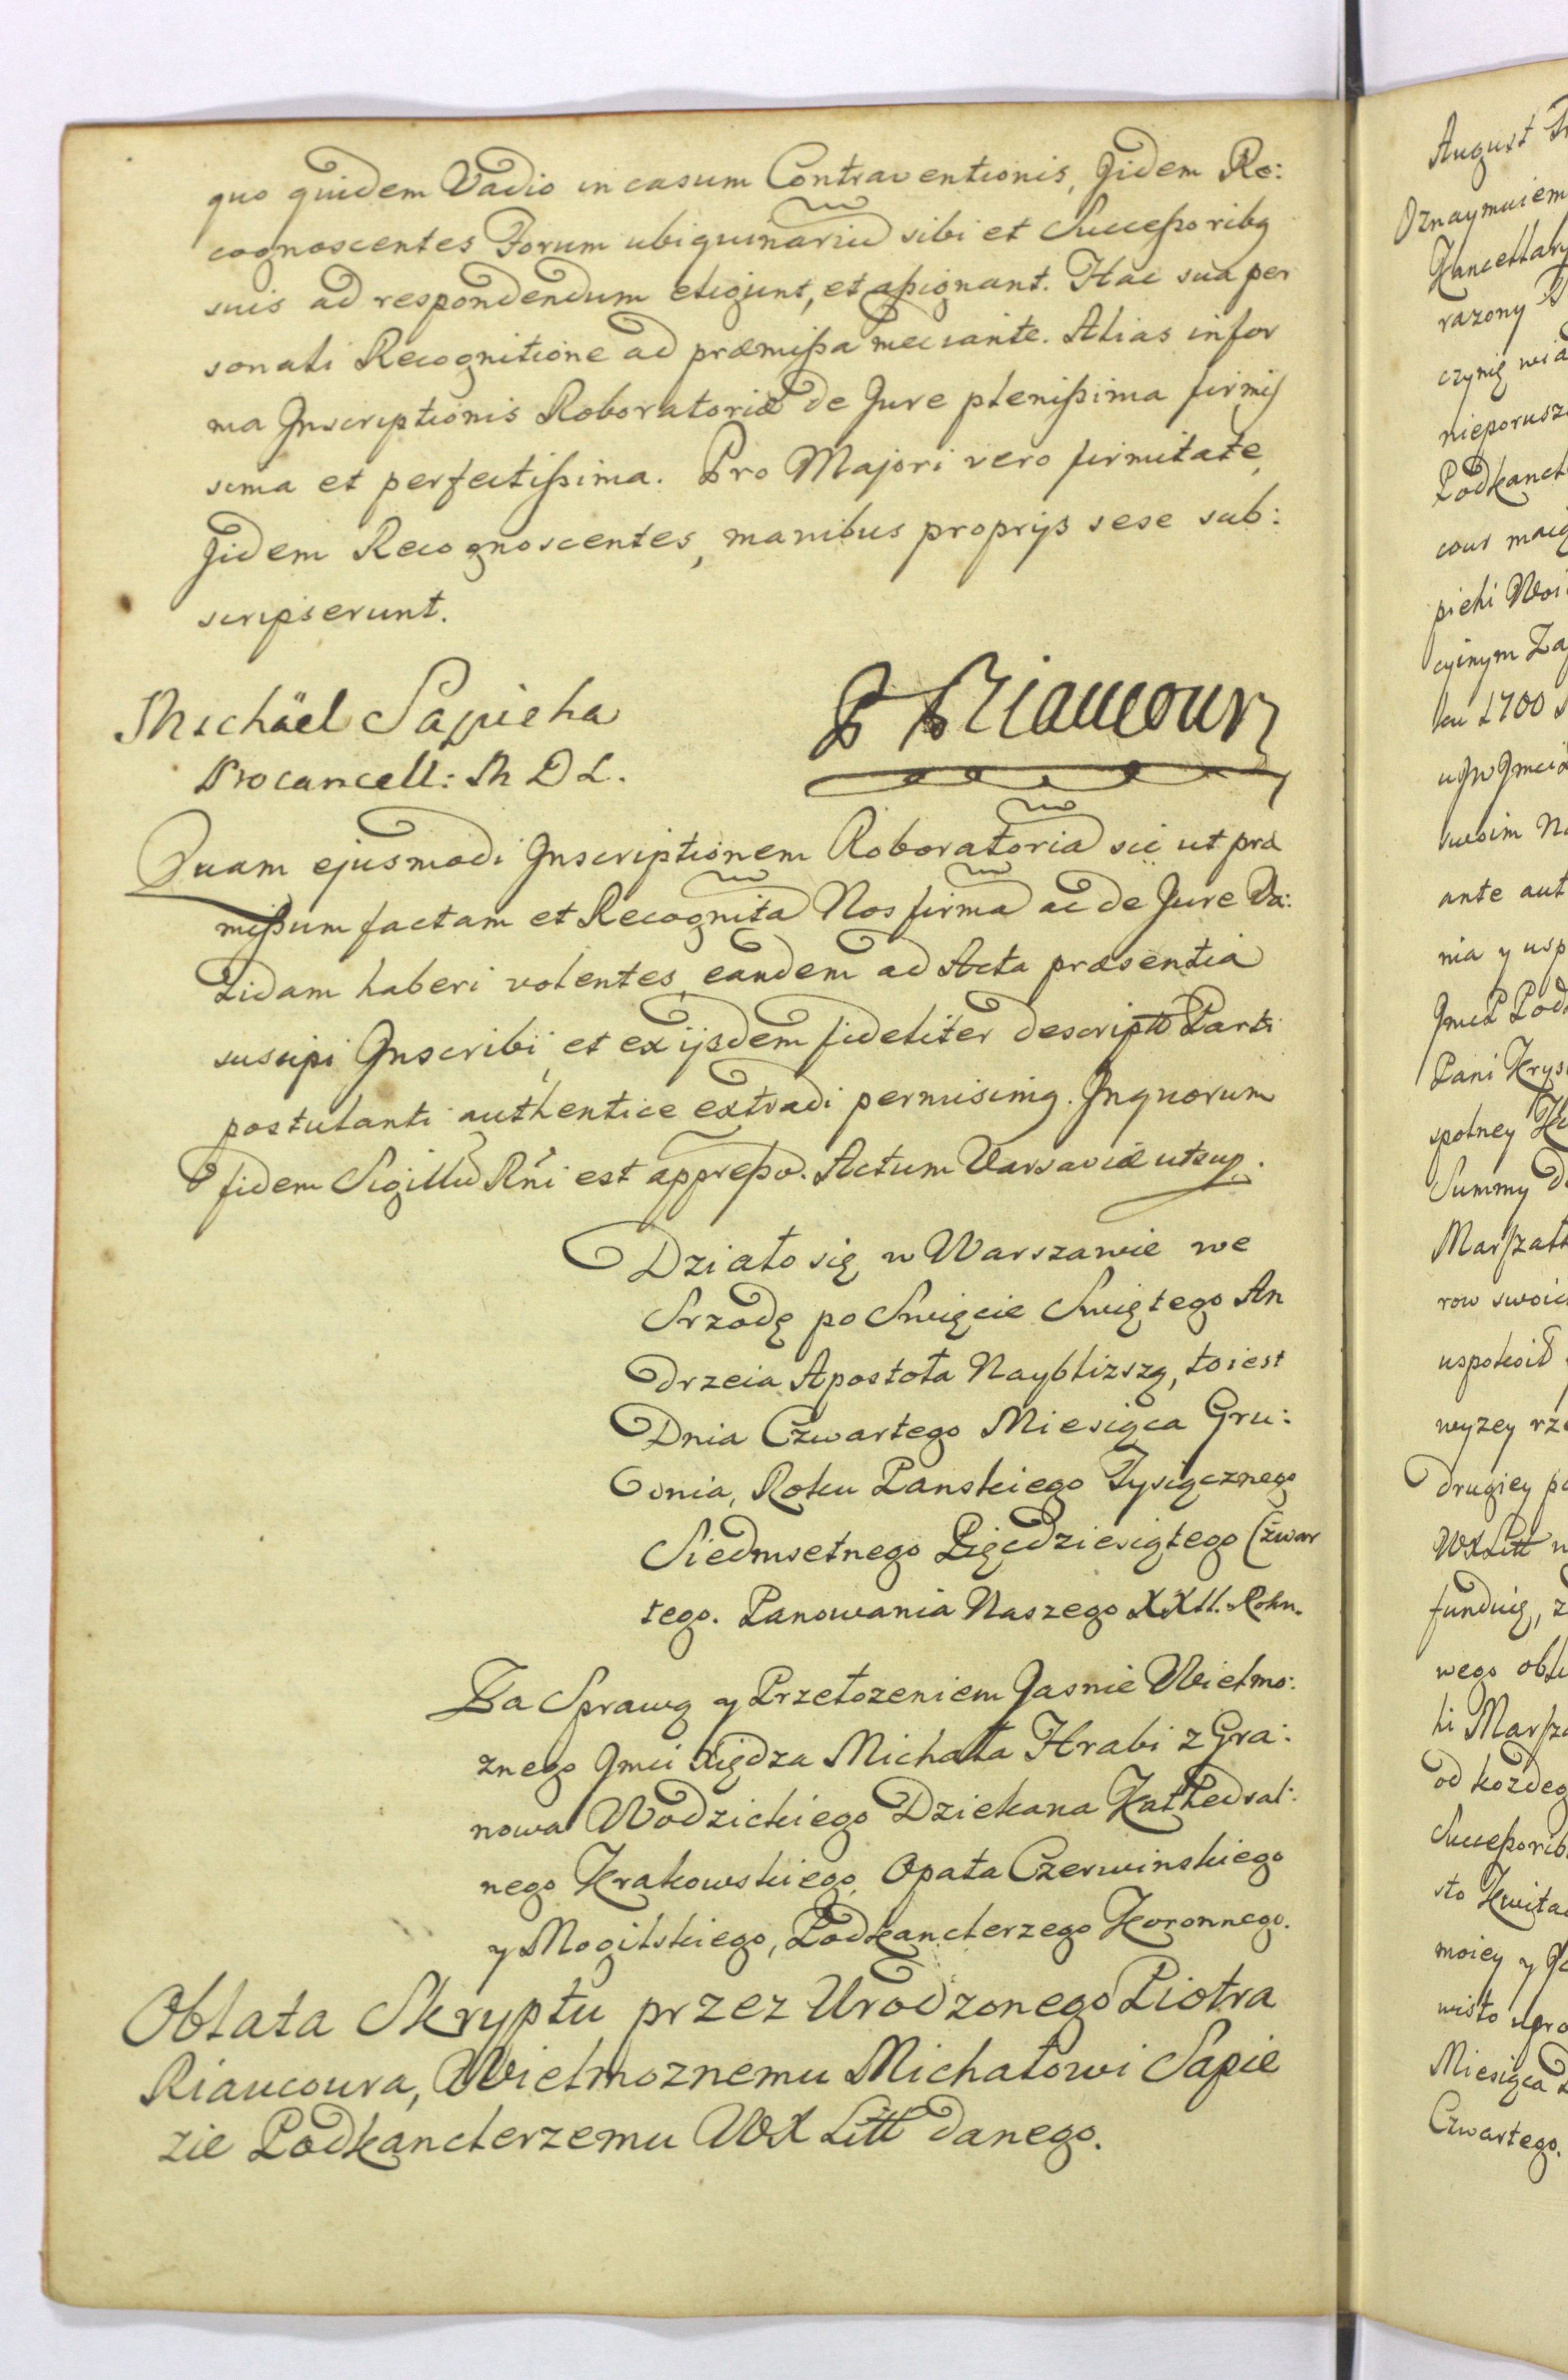 quo quidem Vadio in casum Contraventionis, Jidem Re:
cognoscentes Forum ubiquinariu sibi et Succeßoribq
suis ad respondendum eligunt, et aßignant. Hac sua per
sonali Recognitione ad præmißa mediante. Alias in for
ma Inscriptionis Roboratoriæ de Jure plenißima firmis
sima et perfectißima. Pro Majori vero firmitate,
Jidem Recognoscentes, manibus proprijs sese sub:
scripserunt.
Michäel Sapieha
Procancell: M D L.
P Riaucour
Quam ejusmodi Inscriptionem Roboratoria sic ut præ
mißum factam et Recognita Nos firma ac de Jure Va:
lidam haberi volentes, eandem ad Acta præsentia
suscipi Inscribi, et ex ijsdem fideliter descripto Parti
postulanti authentice extradi permisimq. In quorum
fidem Sigillu Rni est appreßo. Actum Varsaviæ ut sup.
Działo się w Warszawie we
Srzodę po Swięcie Swiętego An
drzeia Apostoła Naybliższą, to iest
Dnia Czwartego Miesiąca Gru:
dnia, Roku Panskiego Tysiącznego
Siedmsetnego Pięcdziesiątego Czwar
tego. Panowania Naszego XXII. Roku.
Za Sprawą y Przełozeniem Jasnie Wielmo:
znego Jmci Xiędza Michała Hrabi z Gra:
nowa Wodzickiego Dziekana Kathedral:
nego Krakowskiego, Opata Czerwinskiego
y Mogilskiego, Podkanclerzego Koronnego.
Oblata Skryptu przez Urodzonego Piotra
Riaucoura, Wielmoznemu Michałowi Sapie
zie Podkanclerzemu WX Litt danego.
August
Oznaymuiem
Kancellary
razony
czynię wia
nieporusz
Podkancl
cour maią
piehi Woi
cyinym Za
ku 1700
swoim
ante
nia y usp
Jmci Pod
Pani Krys
spolney
Summy
Marszałk
row swoich
uspokoił
wyzey rze
drugiey
WXLitt
funduię,
wego
ki Marsz
od kozdeg
Succeßorib
sto Kwita
moiey y
Miesiąca
Czwartego.